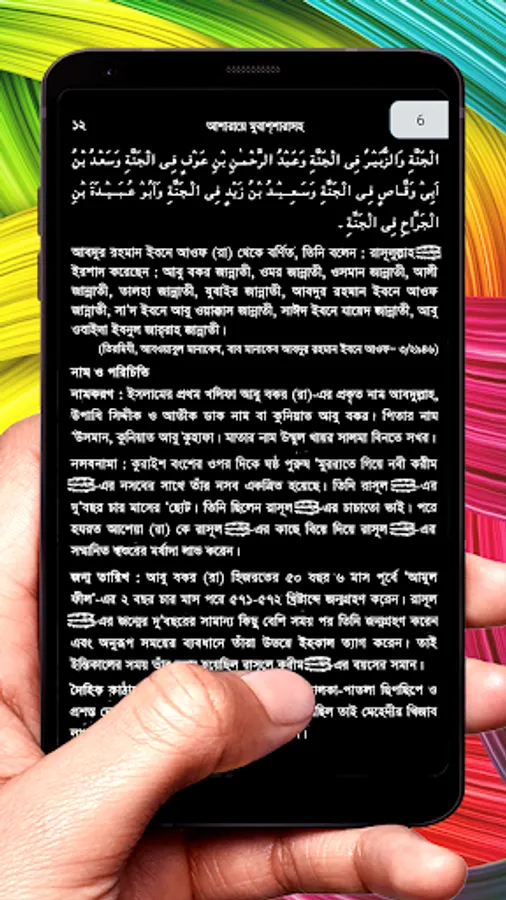 ১২
আশারায়ে মুবাশ্শারাসহ
6
الْجَنَّةِ وَالزُّبَيْرُ فِى الْجَنَّةِ وَعَبْدُ الرَّحْمٰنِ بْنِ عَوْفٍ فِى الْجَنَّةِ وَسَعْدُ بْنُ
اَبِىْ وَقَّاصٍ فِى الْجَنَّةِ وَسَعِيْدُ بْنُ زَيْدٍ فِى الْجَنَّةِ وَاَبُوْ عُبَيْدَةَ بْنِ
الْجَرَّاحِ فِى الْجَنَّةِ ـ
আবদুর রহমান ইবনে আওফ (রা) থেকে বর্ণিত, তিনি বলেন : রাসূলুল্লাহ
ইরশাদ করেছেন : আবু বকর জান্নাতী, ওমর জান্নাতী, ওসমান জান্নাতী, আলী
জান্নাতী, তালহা জান্নাতী, যুবাইর জান্নাতী, আবদুর রহমান ইবনে আওফ
জান্নাতী, সা'দ ইবনে আবু ওয়াক্কাস জান্নাতী, সাঈদ ইবনে যায়েদ জান্নাতী, আবু
ওবাইদা ইবনুল জার্‌রাহ জান্নাতী।
(তিরমিযী, আবওয়াবুল মানাকেব, বাব মানাকেব আবদুর রহমান ইবনে আওফ- ৩/২৯৪৬)
নাম ও পরিচিতি
নামকরণ : ইসলামের প্রথম খলিফা আবু বকর (রা)-এর প্রকৃত নাম আবদুল্লাহ,
উপাধি সিদ্দীক ও আতীক ডাক নাম বা কুনিয়াত আবু বকর। পিতার নাম
'উসমান, কুনিয়াত আবু 'কুহাফা। মাতার নাম উম্মুল খায়র সালমা বিনতে সখর।
নসবনামা : কুরাইশ বংশের ওপর দিকে ষষ্ঠ পুরুষ 'মুররাতে গিয়ে নবী করীম
-এর নসবের সাথে তাঁর নসব একত্রিত হয়েছে। তিনি রাসূল -এর
দু'বছর চার মাসের 'ছোট। তিনি ছিলেন রাসূল -এর চাচাতো ভাই। পরে
হযরত আশেয়া (রা) কে রাসূল -এর কাছে বিয়ে দিয়ে রাসূল -এর
সম্মানিত শ্বশুরের মর্যাদা লাভ করেন।
জন্ম তারিখ : আবু বকর (রা) হিজরতের ৫০ বছর ৬ মাস পূর্বে 'আমুল
ফীল'-এর ২ বছর চার মাস পরে ৫৭১-৫৭২ খ্রিষ্টাব্দে জন্মগ্রহণ করেন। রাসূল
-এর জন্মের দু'বছরের সামান্য কিছু বেশি সময় পর তিনি জন্মগ্রহণ করেন
এবং অনুরূপ সময়ের ব্যবধানে তাঁরা উভয়ে ইহকাল ত্যাগ করেন। তাই
ইন্তিকালের সময় তাঁর হয়েছিল রাসূলে করীম -এর বয়সের সমান।
দৈহিক পাতলা ছিপছিপে ও
প্রশস্ত তাই মেহেদীর খিজাব